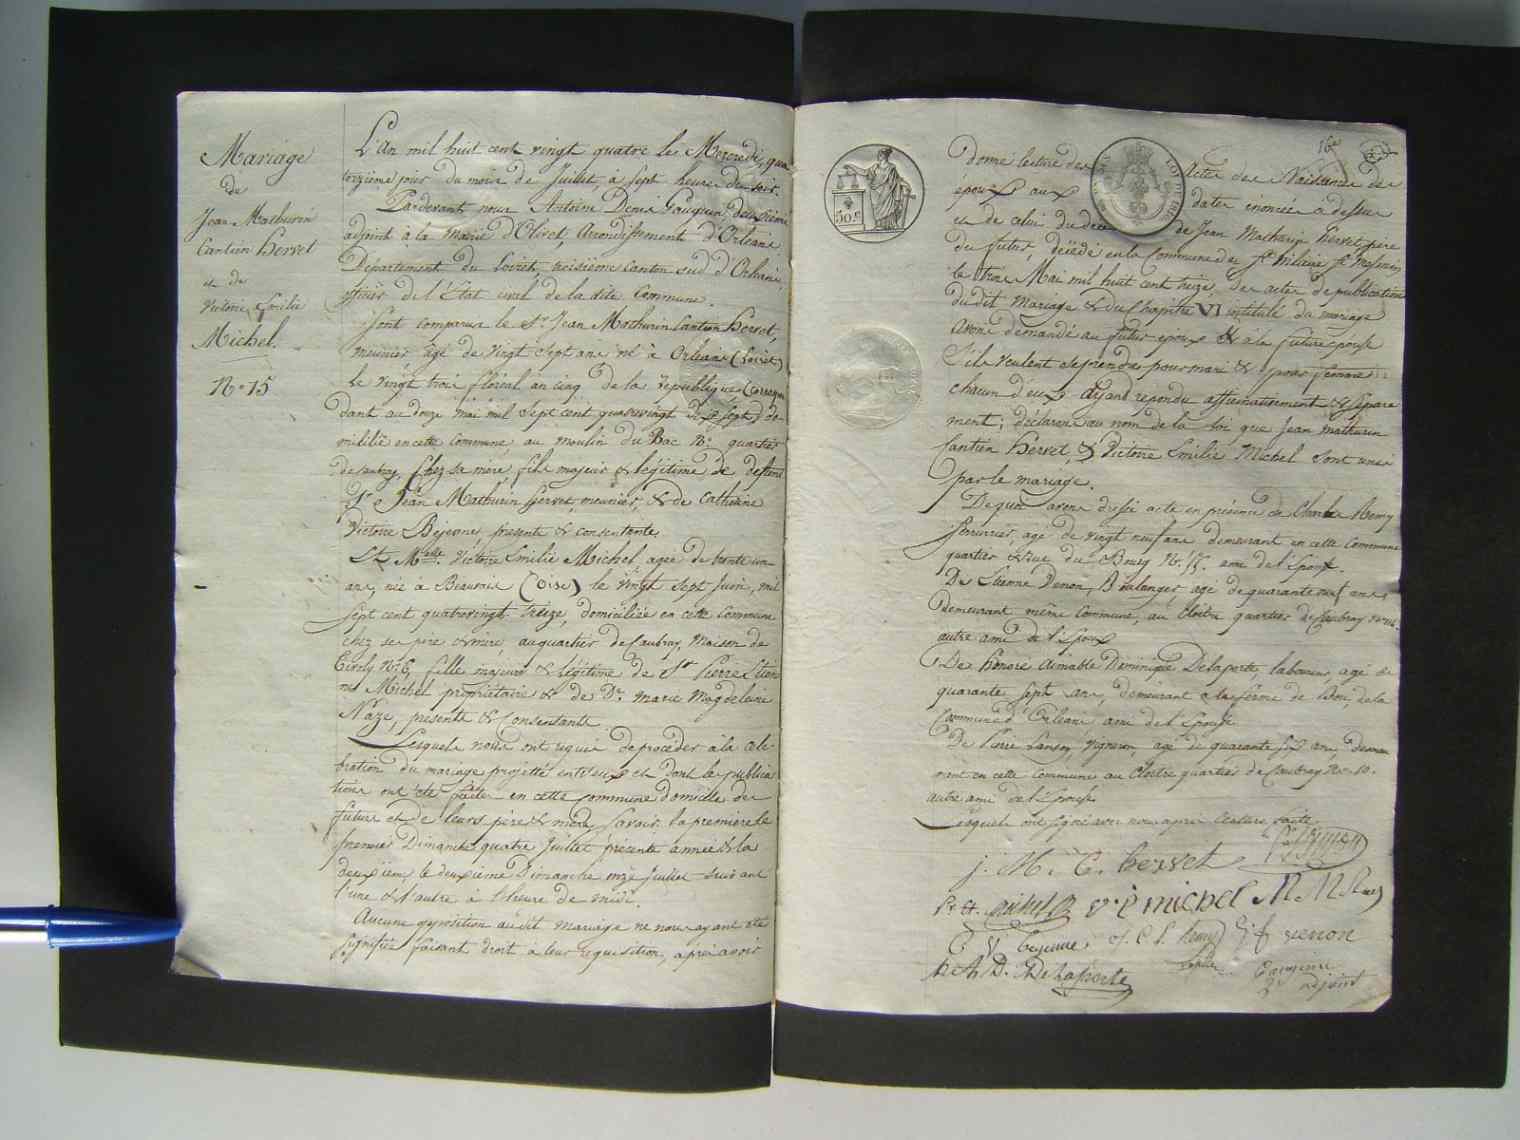 Mariage
de
Jean Mathurin
Cantien Hervet
et de
Victoire Emilie
Michel.
N° 15
L'An mil huit cent vingt quatre le Mercredi, qua
torzième jour du mois de Juillet, à sept heures du soir.
Pardevant nous Antoine Denis Gouguin, deuxième
adjoint à la Mairie d'Olivet, Arrondissement d'Orléans
Département du Loiret, troisième Canton sud d'Orléans,
officier de l'Etat civil de la dite Commune.
Sont comparus le Sr. Jean Mathurin Cantien Hervet,
meunier agé de vingt sept ans né à Orléans (Loiret)
le vingt trois floréal an cinq de la république (correspon
dant au douze mai mil sept cent quatrevingt dix sept) do-
micilié en cette commune, au moulin du Bac N°. quartier
de Caubray, chez sa mère, fils majeur & légitime de défunt
Sr. Jean Mathurin Hervet, meunier, & de Catherine
Victoire Bejeune, présente & consentante
Et Melle. Victoire Emilie Michel, agée de trente un
ans, née à Beauvais (Oise) le vingt sept Juin, mil
sept cent quatrevingt treize, domiciliée en cette Commune
chez ses père & mère, au quartier de Caubray, Maison de
N° 6, fille majeure & légitime de Sr. Pierre Etien
ne Michel propriétaire & de De. Marie Magdeleine
Naze, présents & Consentants
Lesquels nous ont requis de procéder à la célé-
bration du mariage projetté entr'eux et dont les publica
tions ont été faites en cette commune domicile des
futurs et de leurs père & mère, savoir: la première le
premier Dimanche quatre Juillet présente année & la
deuxième le deuxième Dimanche onze Juillet suivant
l'une & l'autre à l'heure de midi.
Aucune opposition audit mariage ne nous ayant été
signifiée faisant droit à leur requisition, après avoir
donné lecture des Actes de Naissance des
époux aux dates énoncées ci dessus
et de celui du décès de Jean Mathurin Hervet, père
du futur, décédé en la Commune de St hilaire St Mesmin
le trois Mai mil huit cent seize, des actes de publications
du dit mariage & du Chapitre VI intitulé du mariage
avons demandé au futur époux & à la future épouse
s'ils veulent se prendre pour mari & pour femme:
chacun d'eux ayant répondu affirmativement & séparé
ment; déclarons au nom de la loi que Jean Mathurin
Cantien Hervet, & Victoire Emilie Michel sont unis
par le mariage.
De quoi avons dressé acte en présence de Charles Henry
Serrurier, agé de vingt neuf ans demeurant en cette Commune
quartier & rue du Bourg N° 15. ami de l'Epoux.
De Etienne Venon, Boulanger agé de quarante neuf ans
demeurant même Commune, au Cloitre quartier de Caubray
autre ami de l'Epoux
De honoré Aimable Dominique Delaporte, laboureur, agé de
quarante sept ans, demeurant à la ferme de de la
Commune d'Orléans ami de l'Epouse
De Pierre Lanson, vigneron, agé de quarante six ans demeu
rant en cette Commune au Cloitre quartier de Caubray N° 10.
autre ami de l'Epouse
Lesquels ont signé avec nous après lecture faite.
j. M. C. hervet
michel v. é michel M M Naze
C V bejeune Henry venon
h A D. Delaporte
2e adjoint
50 c